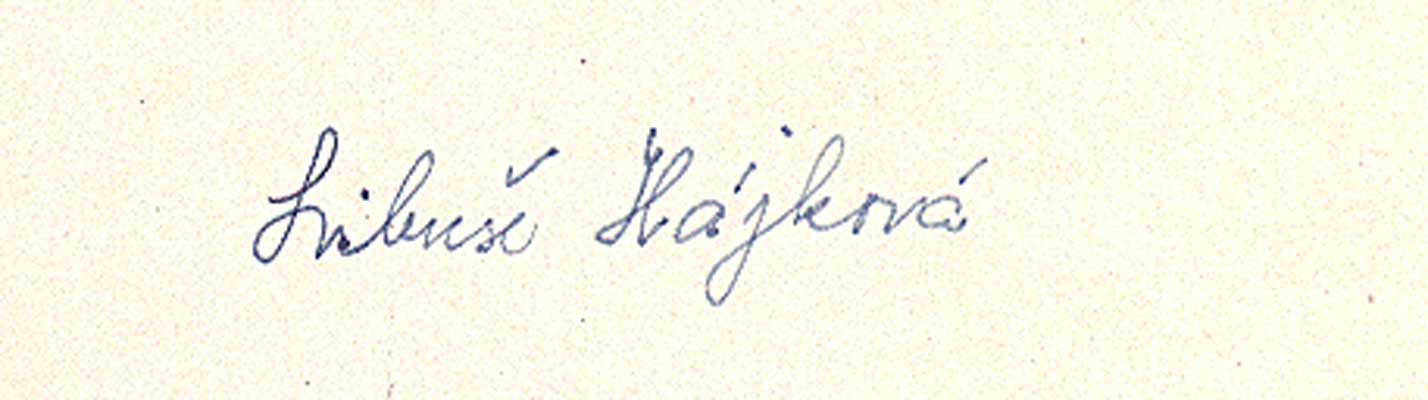 Libuše Hájková